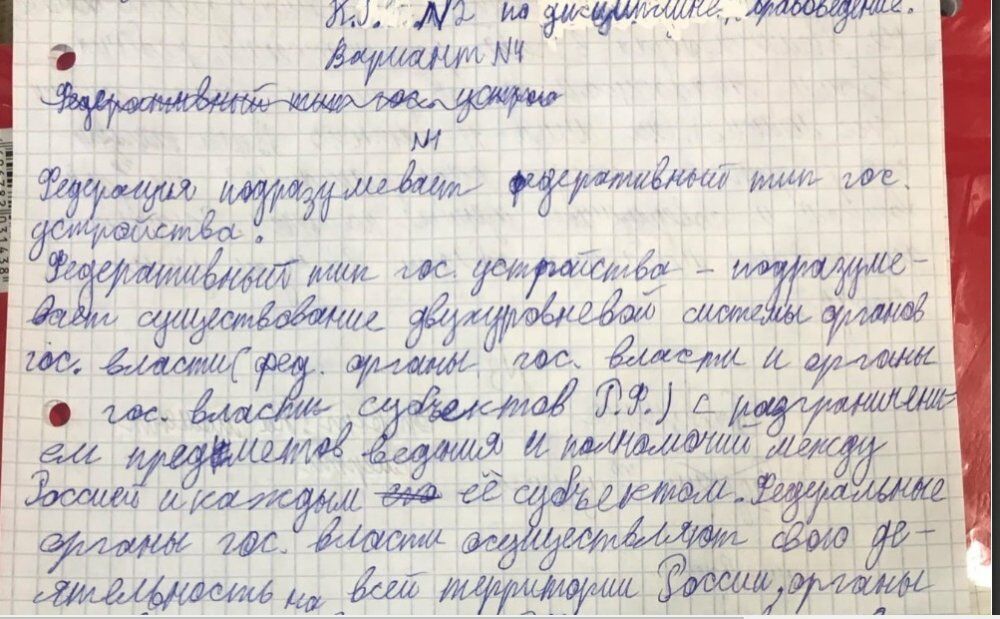 К.Р. №2 по дисциплине правоведение.
Вариант №4
Федеративный тип гос. устрой
№1
Федерация подразумевает федеративный тип гос.
устройства.
Федеративный тип гос. устройства - подразуме-
вает существование двухуровневой системы органов
гос. власти (фед. органы гос. власти и органы
гос. власти субъектов Р.Ф.) с разграничени-
ем предметов ведания и полномочий между
Россией и каждым её субъектом. Федеральные
органы гос. власти осуществляют свою де-
ятельность на всей территории России, органы